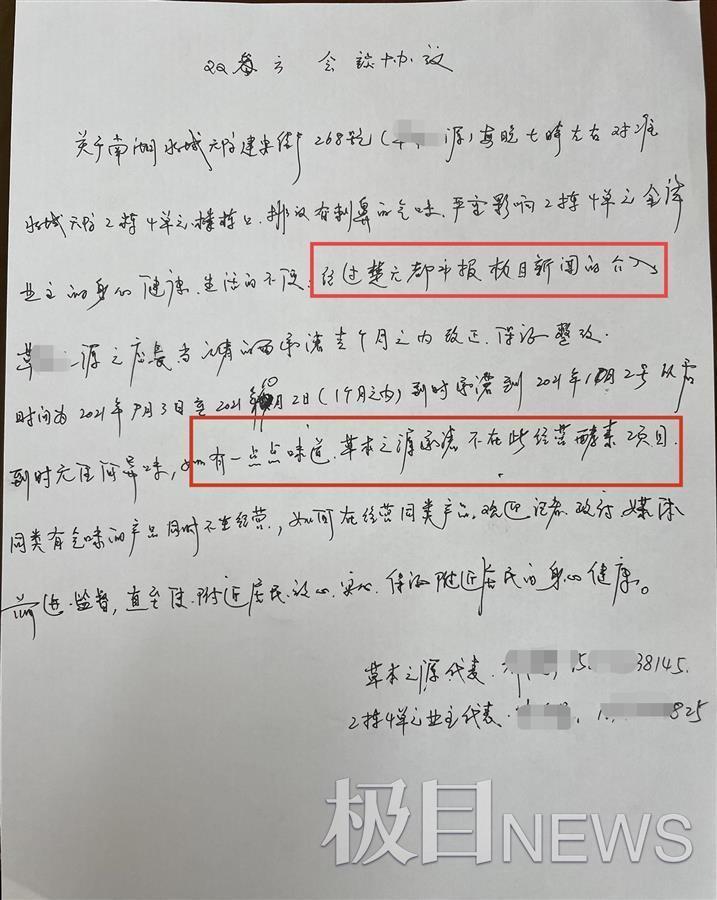 双叁方 会谈协议
关于南湖水域天际建安街268号(源)每晚七时左右对准
水域天际2栋4单元楼栋口.排放有刺鼻的气味.严重影响2栋4单元全体
业主的身心健康.生活的不便.经过楚天都市报极目新闻的介入
草源之店长当 的面承诺壹个月之内改正.保证整改.
时间为2021年9月3日至2021 10月2日(1个月之内)到时承诺到2021年10月2号以后
到时无任何异味,如有一点点味道.草本之源承诺不在此经营酵素项目.
同类有气味的产品同时不在经营,如何在经营同类产品.欢迎记者.政府媒体
前 进.监督,直至使.附近居民.放心.安心.保证附近居民的身心健康。
草本之源代表. 15 38145.
2栋4单元业主代表. 1 825
极目NEWS